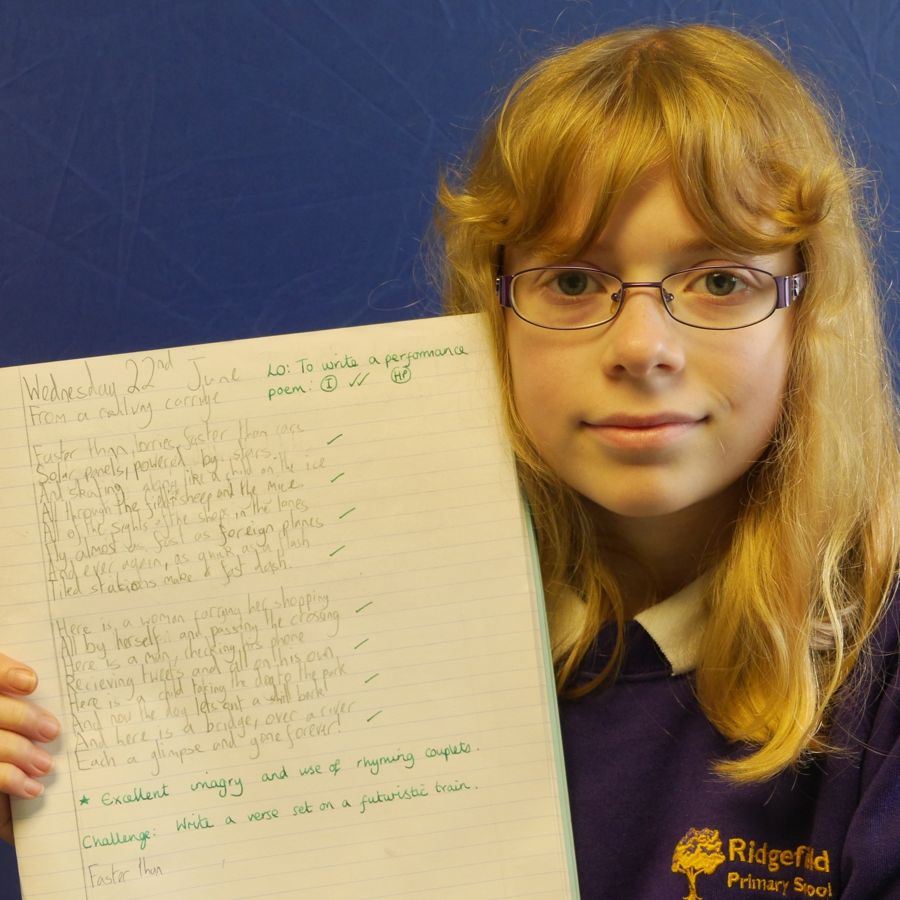 Wednesday 22nd June
From a railway carrige
LO: To write a performance
poem: I ✓✓ HP
Faster than lorries, faster than cars
Solar panels, powered by stars.
And skating along like a child on the ice
All through the field sheep and the mice.
All of the sights of the shops in the lanes
Fly almost as fast as foreign planes
And ever again, as quick as a flash
Tiled stations make a fast dash.
Here is a woman carrying her shopping
All by herself and passing the crossing
Here is a man, checking his phone
Recieving tweets and all on his own,
Here is a child taking the dog to the park
And now the dog lets out a shrill bark!
And here is a bridge, over a river
Each a glimpse and gone forever!
★ Excellent imagry and use of rhyming couplets.
Challenge: Write a verse set on a futuristic train.
Faster than
Ridgefield
Primary School